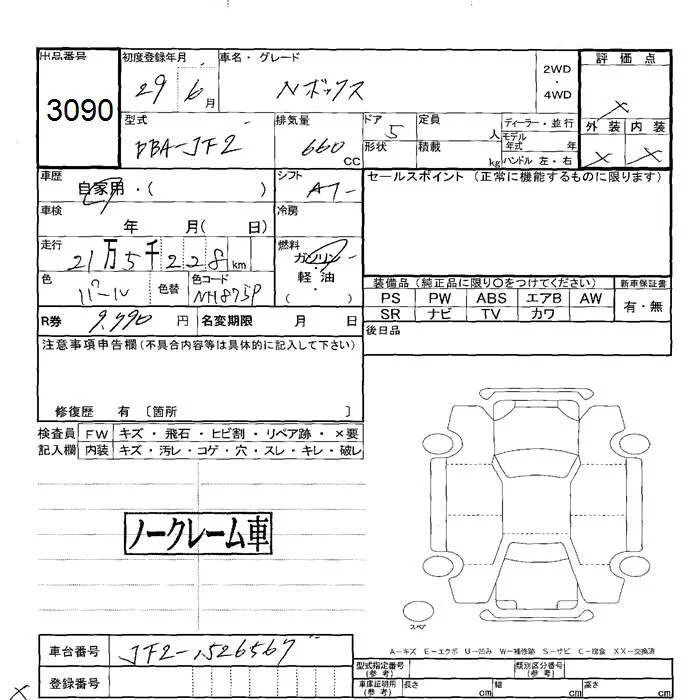 出品番号 初度登録年月 車名・グレード 評価点
3090 29 6月 Nボックス 2WD・4WD ×
型式 排気量 ドア 定員 ディーラー・並行 外装 内装
DBA-JF2 660 CC 5 人 モデル年式 年 × ×
形状 積載 kg ハンドル 左・右
車歴 自家用・( ) シフト AT セールスポイント(正常に機能するものに限ります)
車検 年 月( 日) 冷房
走行 21万5千228km 燃料 ガソリン・軽油・( )
色 パール 色替 色コード NH875P
装備品(純正品に限り〇をつけてください) 新車保証書
PS PW ABS エアB AW 有・無
SR ナビ TV カワ
R券 9,990円 名変期限 月 日 後日品
注意事項申告欄(不具合内容等は具体的に記入して下さい)
修復歴 有 〔箇所 〕
検査員 FW キズ・飛石・ヒビ割・リペア跡・×要
記入欄 内装 キズ・汚レ・コゲ・穴・スレ・キレ・破レ
ノークレーム車
スペア
A-キズ E-エクボ U-凹み W-補修跡 S-サビ C-腐食 XX-交換済
車台番号 JF2-1526567
型式指定番号(参考) 類別区分番号(参考)
登録番号 車庫証明用(参考) 長さ cm 幅 cm 高さ cm
×